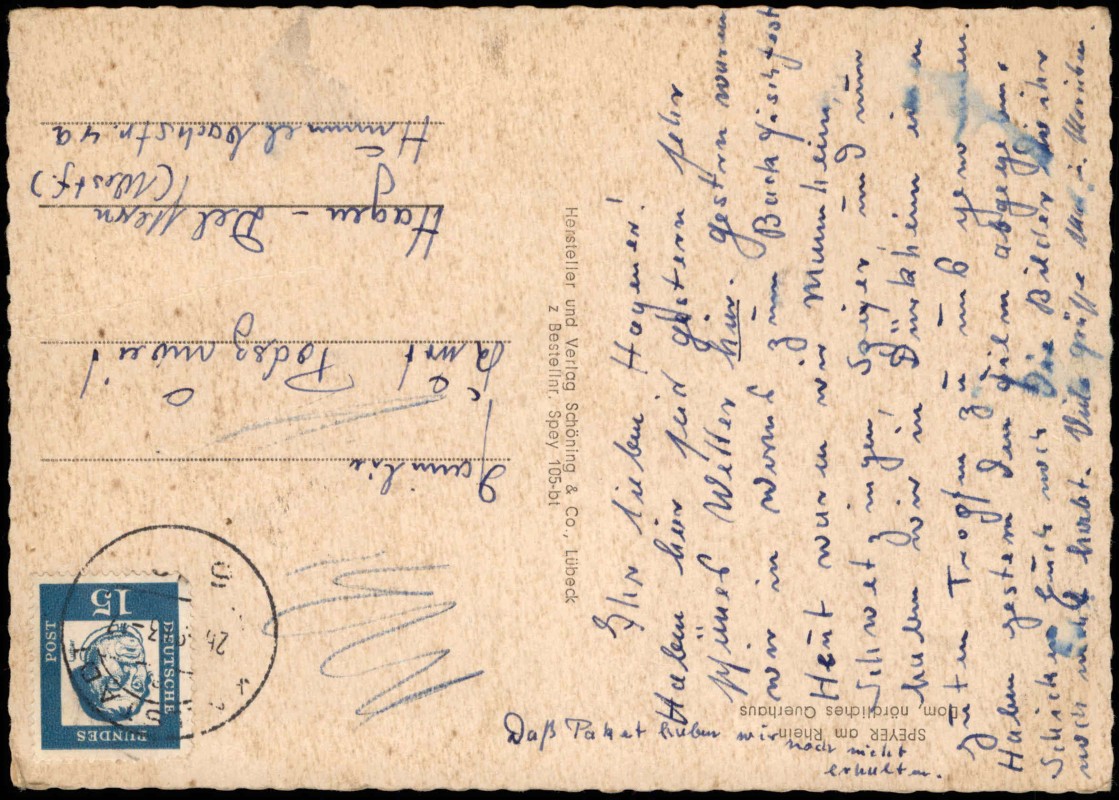 SPEYER am Rhein
Dom nördliches Querhaus
Ihr lieben Hagener!
Haben hier seit gestern sehr
schönes Wetter hier. gestern waren
wir in Worms zum Backfischfest
Heut waren wir Mannheim,
Schwetzingen Speyer und nun
haben wir in Dürkheim einen
guten Tropfen zu uns genommen.
Haben gestern den Film abgegeben
Schicken Euch noch die Bilder die ihr
noch nicht habt. Viele Grüße
Daß Paket haben wir noch nicht
erhalten.
Hersteller und Verlag Schöning & Co., Lübeck
z Bestellnr. Spey 105-bt
DEUTSCHE
BUNDES
POST
15
Familie
Hagen - Delstern
(Westf.)
Himmelbachstr. 4a